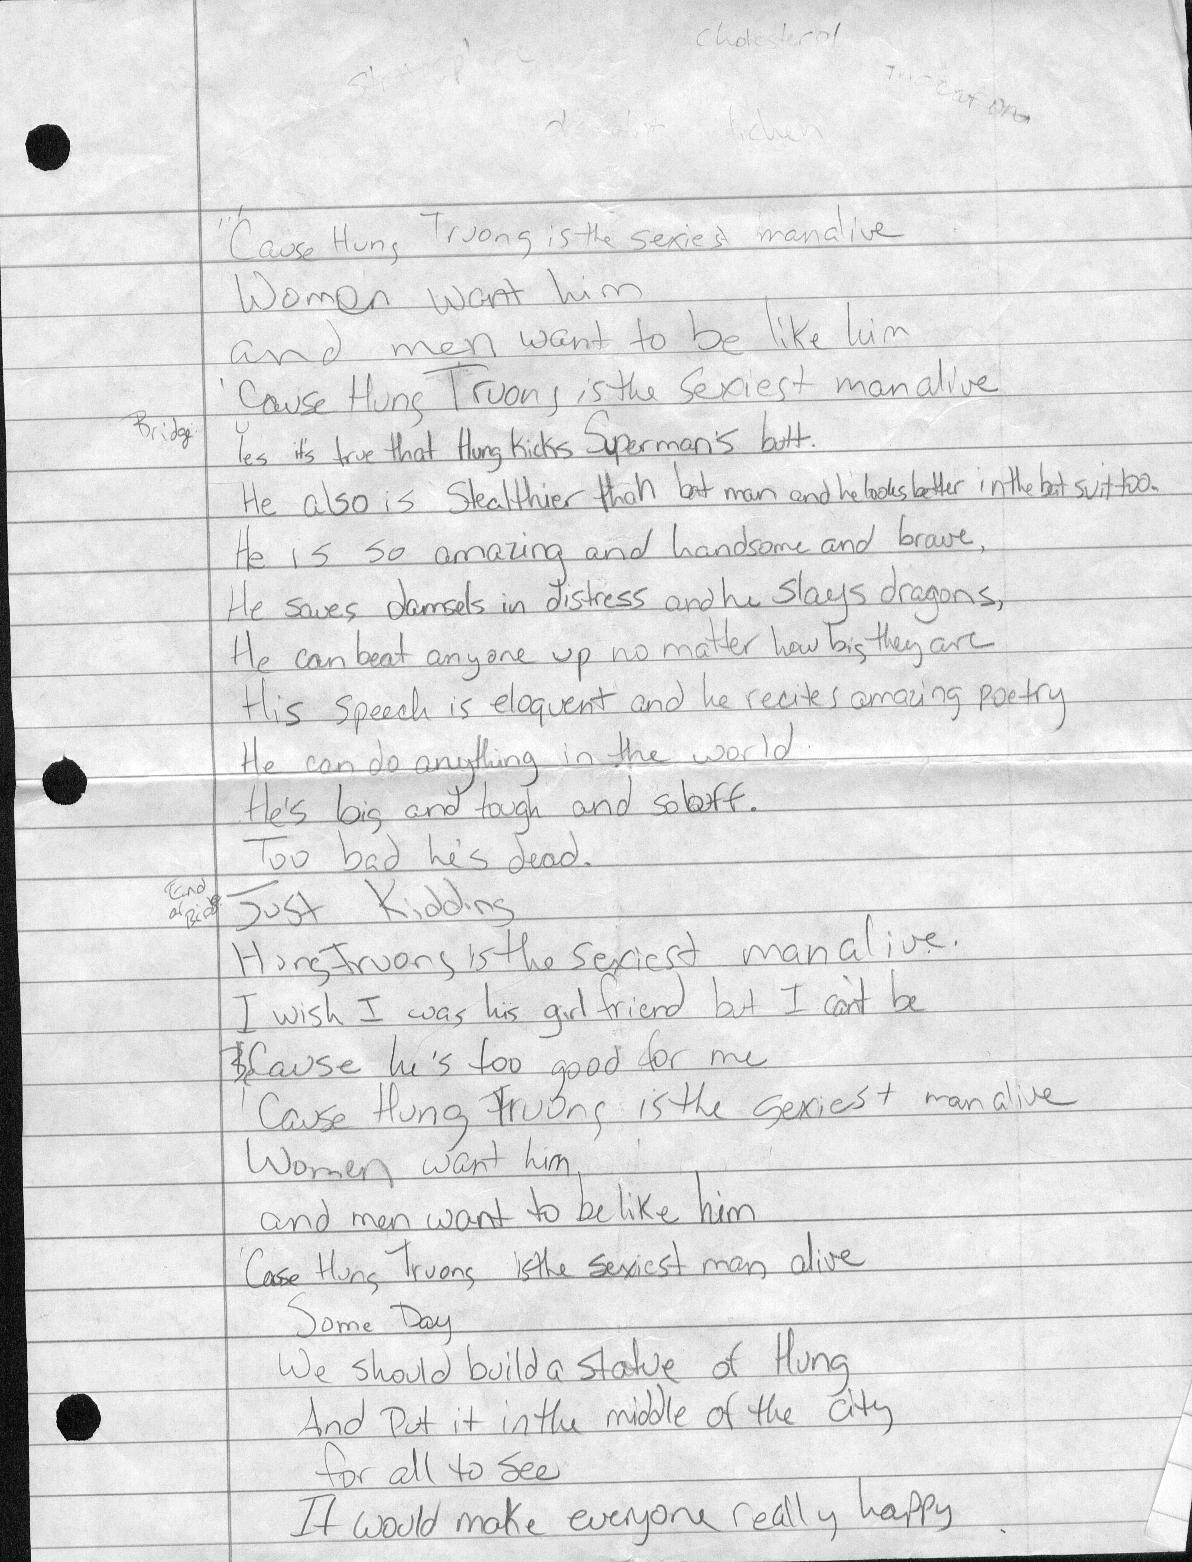 cholesterol
'Cause Hung Truong is the sexiest man alive
Women want him
and men want to be like him
'Cause Hung Truong is the sexiest man alive
Bridge Yes it's true that Hung Kicks Superman's butt.
He also is Stealthier than bat man and he looks better in the bat suit too.
He is so amazing and handsome and brave,
He saves damsels in distress and he slays dragons,
He can beat anyone up no matter how big they are
His speech is eloquent and he recites amazing poetry
He can do anything in the world.
He's big and tough and so buff.
Too bad he's dead.
End of Bridge Just Kidding
Hung Truong is the sexiest man alive.
I wish I was his girlfriend but I can't be
Cause he's too good for me
'Cause Hung Truong is the sexiest man alive
Women want him,
and men want to be like him
'Cause Hung Truong is the sexiest man alive
Some Day
We should build a statue of Hung
And Put it in the middle of the city
for all to see
It would make everyone really happy.